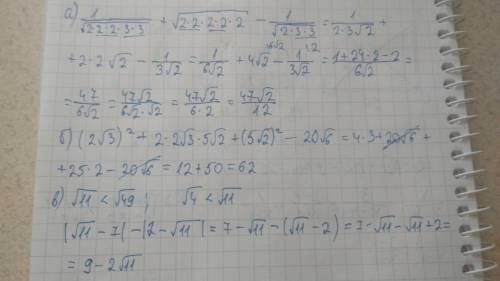 а) 1/√(2·2·2·3·3) + √(2·2·2·2·2) − 1/√(2·3·3) = 1/(2·3√2) +
+ 2·2·√2 − 1/(3√2) = 1/(6√2) + 4√2 \6√2 − 1/(3√2) \2 = (1+24·2−2)/(6√2) =
= 47/(6√2) = 47√2/(6√2·√2) = 47√2/(6·2) = 47√2/12
б) (2√3)² + 2·2√3·5√2 + (5√2)² − 20√6 = 4·3 + 20√6 +
+ 25·2 − 20√6 = 12 + 50 = 62
в) √11 < √49 ; √4 < √11
|√11 − 7| − |2 − √11| = 7 − √11 − (√11 − 2) = 7 − √11 − √11 + 2 =
= 9 − 2√11